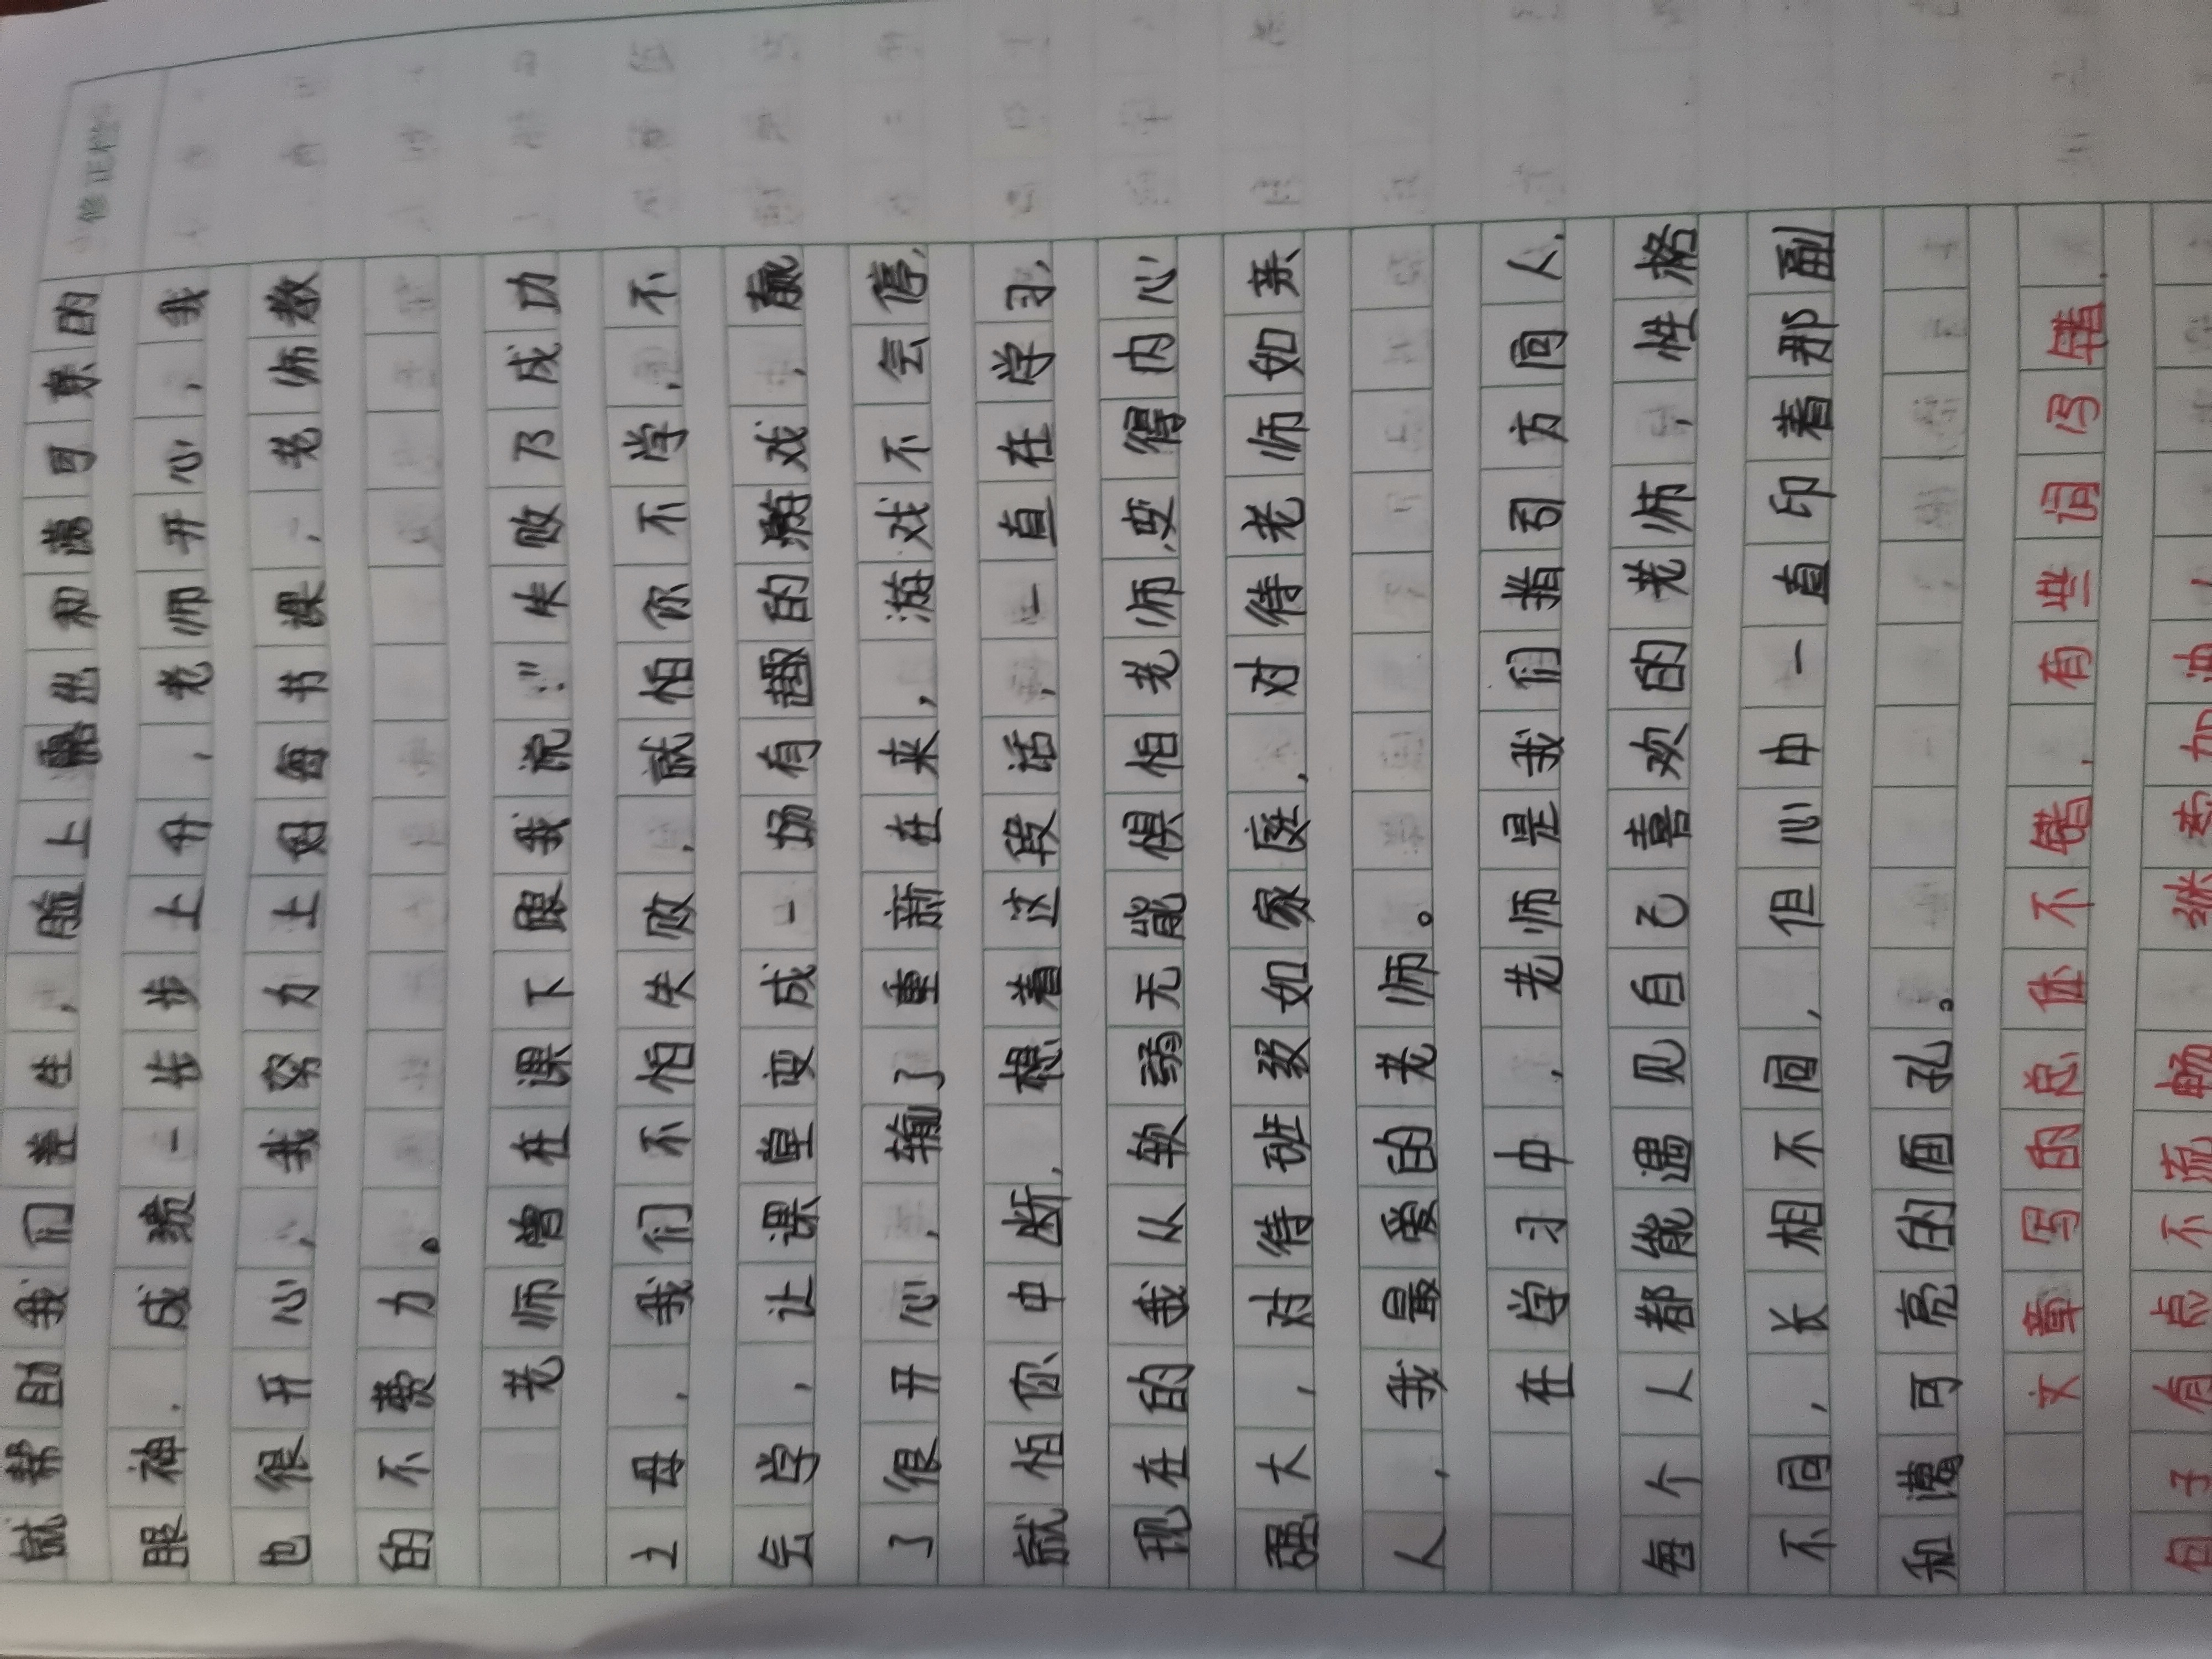 就帮助我们差生，脸上露出和蔼可亲的
眼神，成绩一步步上升，老师开心，我
也很开心，我努力上好每书课，老师教
的不费力。
老师曾在课下跟我说：“失败乃成功
之母，我们不怕失败，就怕你不学，不
会学，让课堂变成一场有趣的游戏，赢
了很开心，输了重新在来，游戏不会停，
就怕你中断，想着这段话，一直在学习，
现在的我从软弱无能惧怕老师变得内心
强大，对待班级如家庭，对待老师如亲
人，我最爱的老师。
在学习中，老师是我们指引方向人，
每个人都能遇见自己喜欢的老师，性格
不同，长相不同，但心中一直印着那副
和蔼可亮的面孔。
文章写的总体不错，有些词写错，
句子有点不流畅 继续加油！
修正栏